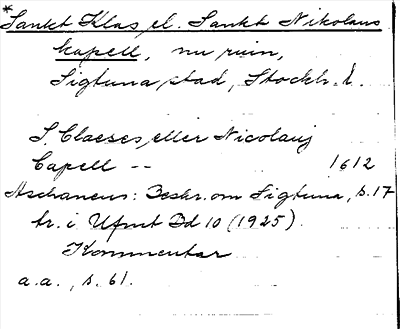 *Sankt Klas el. Sankt Nikolaus
kapell, nu ruin,
Sigtuna stad, Stockh. l.
S. Claeses eller Nicolauj
Capell -- 1612
Aschaneus: Beskr. om Sigtuna, s. 17
tr. i Ufmt Bd 10 (1925).
Kommentar
a.a., s. 61.